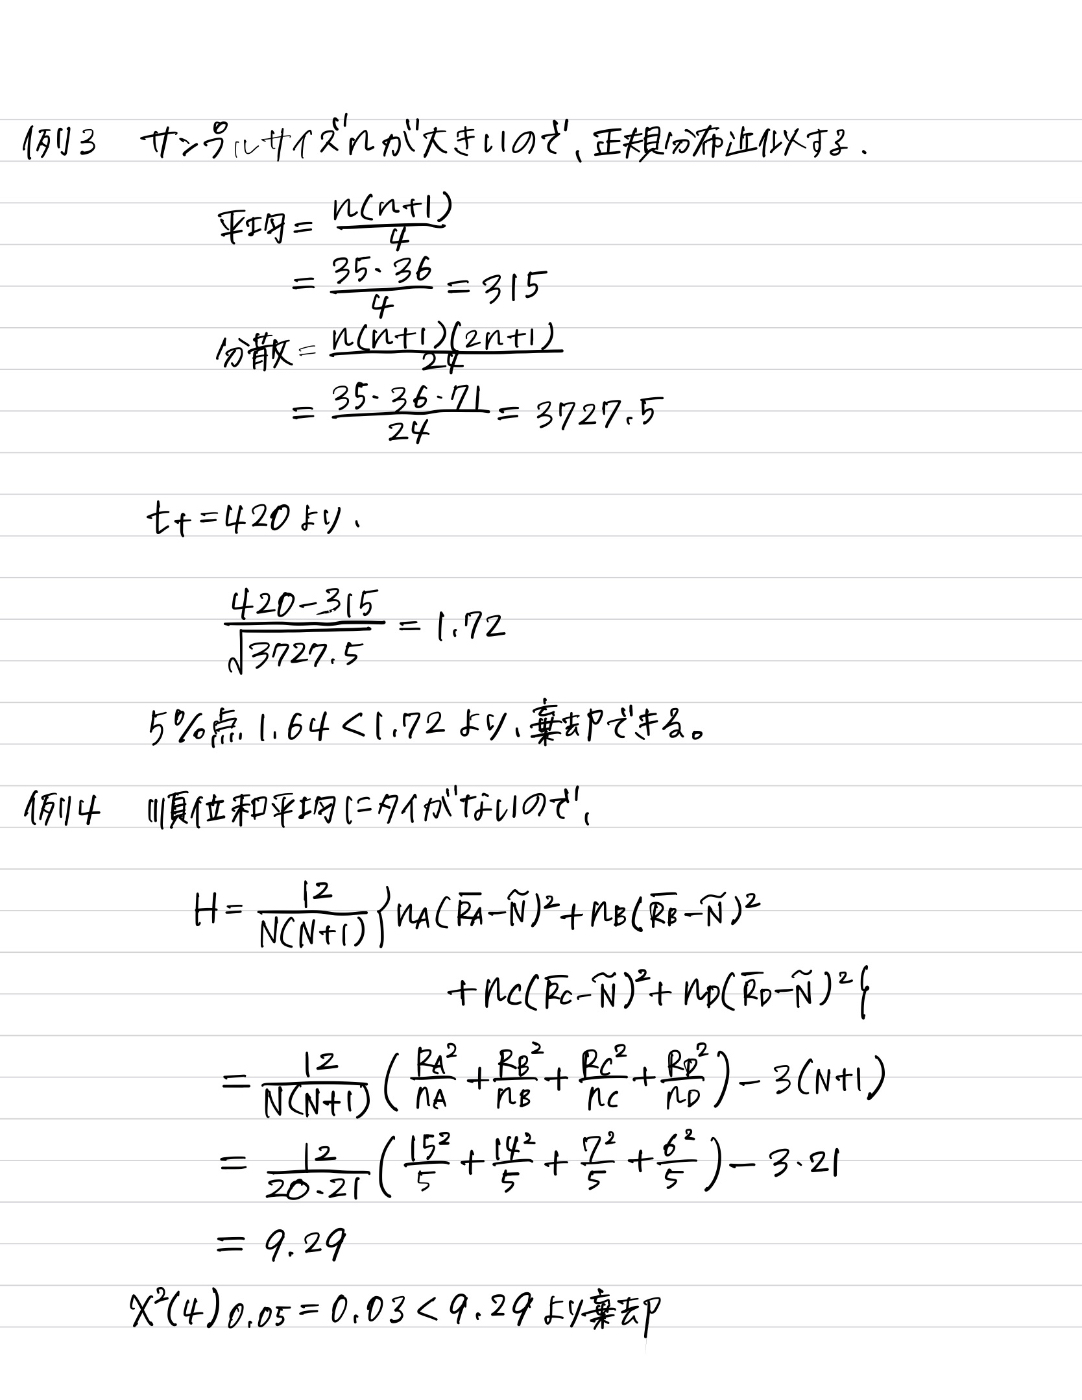 例3 サンプルサイズnが大きいので、正規分布近似する.
平均 = n(n+1)/4
= 35・36/4 = 315
分散 = n(n+1)(2n+1)/24
= 35・36・71/24 = 3727.5
t+ = 420 より、
(420-315)/√3727.5 = 1.72
5%点 1.64 < 1.72 より、棄却できる。
例4 順位和平均にタイがないので、
H = 12/N(N+1) {nA(R̄A-Ñ)²+nB(R̄B-Ñ)²
+nC(R̄C-Ñ)²+nD(R̄D-Ñ)²}
= 12/N(N+1) (RA²/nA + RB²/nB + RC²/nC + RD²/nD) - 3(N+1)
= 12/20・21 (15²/5 + 14²/5 + 7²/5 + 6²/5) - 3・21
= 9.29
χ²(4)0.05 = 0.03 < 9.29 より棄却